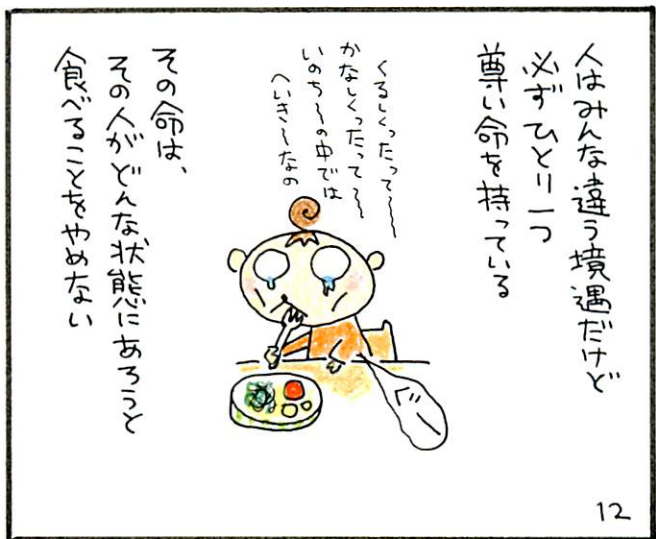 人はみんな違う境遇だけど
必ずひとり一つ
尊い命を持っている
くるしくったって〜〜
かなしくったって〜〜
いのち〜の中では
へいき〜なの
グー
その命は、
その人がどんな状態にあろうと
食べることをやめない
12